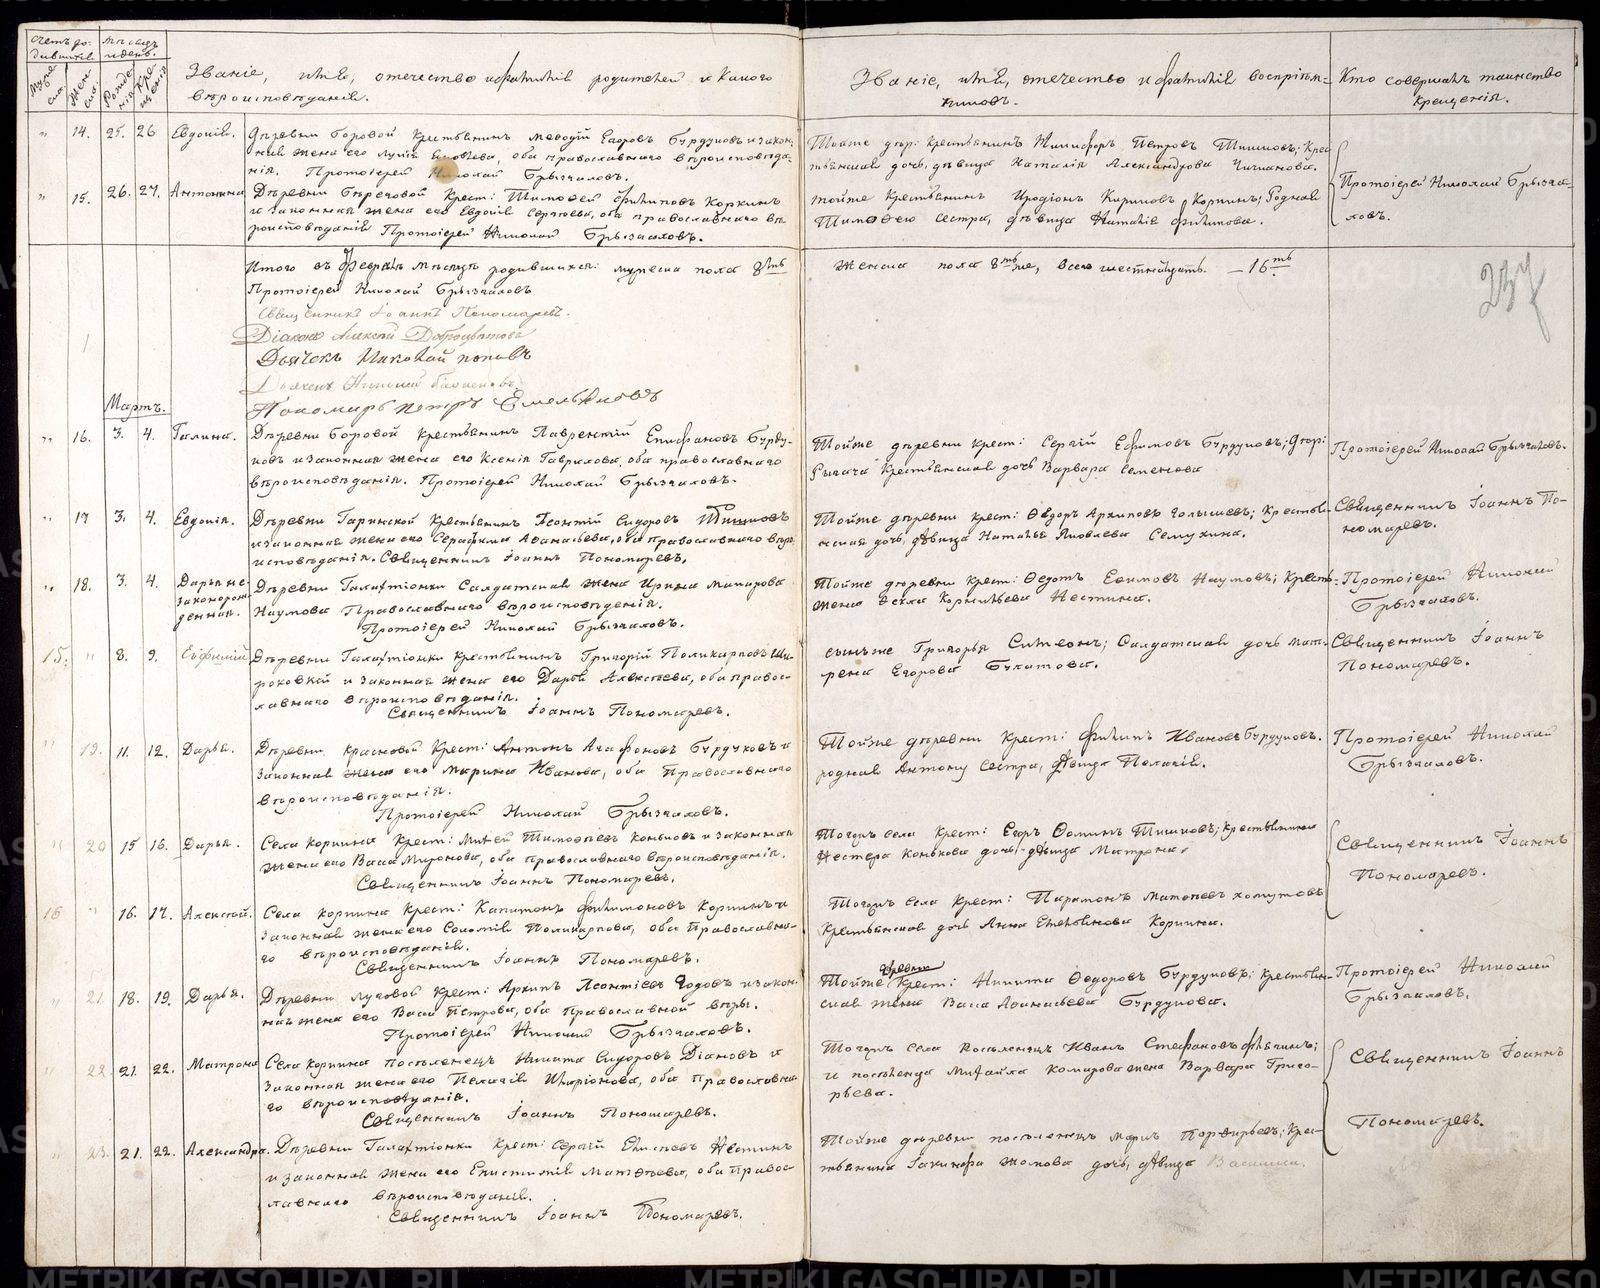 Счетъ ро-
дившихся
Мѣсяцъ
и день.
Муже
ска.
Жен
ска.
Рожде
нія
Кре
щенія
Званіе, имѣ, отечество и фамилія родителей и какого
вѣроисповѣданія.
Званіе, имѣ, отечество и фамилія воспріем-
никовъ.
Кто совершалъ таинство
крещенія.
" 14. 25. 26 Евдокія. Деревни Боровой крестьянинъ Меѳодій Егоровъ Бурдуковъ и закон-
ная жена его Лукія, оба православнаго вѣроисповѣда-
нія. Протоіерей Николай Брызгаловъ.
Тойже дер: крестьянинъ Никифоръ Петровъ Тишковъ; крес-
тьянская дочь, дѣвица Наталія Александрова
" 15. 26. 27. Антонина Деревни Береговой Крест: Тимоѳей Филиповъ Коркинъ
и законная жена его Евдокія Сергѣева, оба православнаго вѣ-
роисповѣданія Протоіерей Николай Брызгаловъ.
тойже Крестьянинъ Иродіонъ Кириловъ Коркинъ; Родная
Тимоѳею сестра, дѣвица Наталія Филипова.
Протоіерей Николай Брызга-
ловъ.
Итого въ Февралѣ мѣсяцѣ родившихся: мужеска пола 8мь
женска пола 8мь же, всего шестнадцать. — 16.ть
237
Протоіерей Николай Брызгаловъ
Священникъ Іоаннъ Пономаревъ.
Діаконъ Алексѣй Доброцвѣтовъ
Дьячекъ Николай Поповъ
Дьячекъ Николай
Пономарь Петръ Емельяновъ
Мартъ.
" 16. 3. 4. Галина. Деревни Боровой крестьянинъ Лаврентій Епифановъ Бурду-
ковъ и законная жена его Ксенія Гаврилова, оба православнаго
вѣроисповѣданія. Протоіерей Николай Брызгаловъ.
Тойже деревни крест: Сергій Ефимовъ Бурдуковъ; дер:
Рычага крестьянская дочь Варвара Семенова
Протоіерей Николай Брызгаловъ.
" 17 3. 4. Евдокія. Деревни Гаринской крестьянинъ Леонтій Сидоровъ Тишковъ
и законная жена его Серафима Аѳанасьева, оба православнаго вѣро-
исповѣданія. Священникъ Іоаннъ Пономаревъ.
Тойже деревни крест: Ѳедоръ Архиповъ Голышевъ; крестья-
нская дочь, дѣвица Наталья Яковлева Семухина.
Священникъ Іоаннъ По-
номаревъ.
" 18. 3. 4. Дарья не-
законорож-
денная.
Деревни Галактіонки Салдатская жена Ирина Макарова
Наумова Православнаго вѣроисповѣденія.
Протоіерей Николай Брызгаловъ.
Тойже деревни крест: Ѳедотъ Ефимовъ Наумовъ; Крестья-
жена Ѳекла Корнильева Нестина.
Протоіерей Николай
Брызгаловъ.
15. " 8. 9. Евфимій Деревни Галактіонки крестьянинъ Григорій Поликарповъ Ши-
роковъ и законная жена его Дарья Алексѣева, оба право-
славнаго вѣроисповѣданія.
Священникъ Іоаннъ Пономаревъ.
сынъ же Григорья Симеонъ; Салдатская дочь мат-
рена Егорова Булатова.
Священникъ Іоаннъ
Пономаревъ.
" 19. 11. 12. Дарья. Деревни Красновой Крест: Антонъ Агафоновъ Бурдуковъ и
законная жена его Марина Иванова, оба Православнаго
вѣроисповѣданія.
Протоіерей Николай Брызгаловъ.
Тойже деревни крест: Филипъ Ивановъ Бурдуковъ.
родная Антону сестра, дѣвица Пелагія.
Протоіерей Николай
Брызгаловъ.
" 20 15 16. Дарья. Села Коркина Крест: Михей Тимоѳеевъ Коньковъ и законная
жена его Васса Миронова, оба православнаго вѣроисповѣданія.
Священникъ Іоаннъ Пономаревъ.
Тогожъ села крест: Егоръ Ѳоминъ Тишковъ; крестьянина
Нестера Конькова дочь, дѣвица Матрона.
Священникъ Іоаннъ
Пономаревъ.
16 " 16. 17. Алексѣй. Села Коркина Крест: Капитонъ Филимоновъ Коркинъ и
законная жена его Соломія Поликарпова, оба Православна-
го вѣроисповѣданія.
Священникъ Іоаннъ Пономаревъ.
Тогожъ села крест: Парамонъ Матвѣевъ Хомутовъ
Крестьянская дочь Анна Емельянова Коркина.
" 21 18. 19. Дарья. Деревни Луговой Крест: Архипъ Леонтіевъ Годовъ и закон-
ная жена его Васса Петрова, оба православной вѣры.
Протоіерей Николай Брызгаловъ.
деревни
Тойже Крест: Никита Ѳедоровъ Бурдуковъ; крестьян-
ская жена Васса Аѳанасьева Бурдукова.
Протоіерей Николай
Брызгаловъ.
" 22. 21. 22. Матрона Села Коркина поселенецъ Никита Сидоровъ Діановъ и
законная жена его Пелагія Иларіонова, оба православна-
го вѣроисповѣданія.
Священникъ Іоаннъ Пономаревъ.
Тогожъ села поселенецъ Иванъ Стефановъ;
и поселенца Михаила Комарова жена Варвара Григо-
рьева.
Священникъ Іоаннъ
Пономаревъ.
" 23. 21. 22. Александра. Деревни Галактіонки крест: Сергій Елисѣевъ Нестинъ
и законная жена его Епистимія Матѳѣева, оба право-
славнаго вѣроисповѣданія.
Священникъ Іоаннъ Пономаревъ.
Тойже деревни поселенецъ Маркъ Порфирьевъ; крес-
тьянина Гакинфа Жомова дочь, дѣвица Василиса.